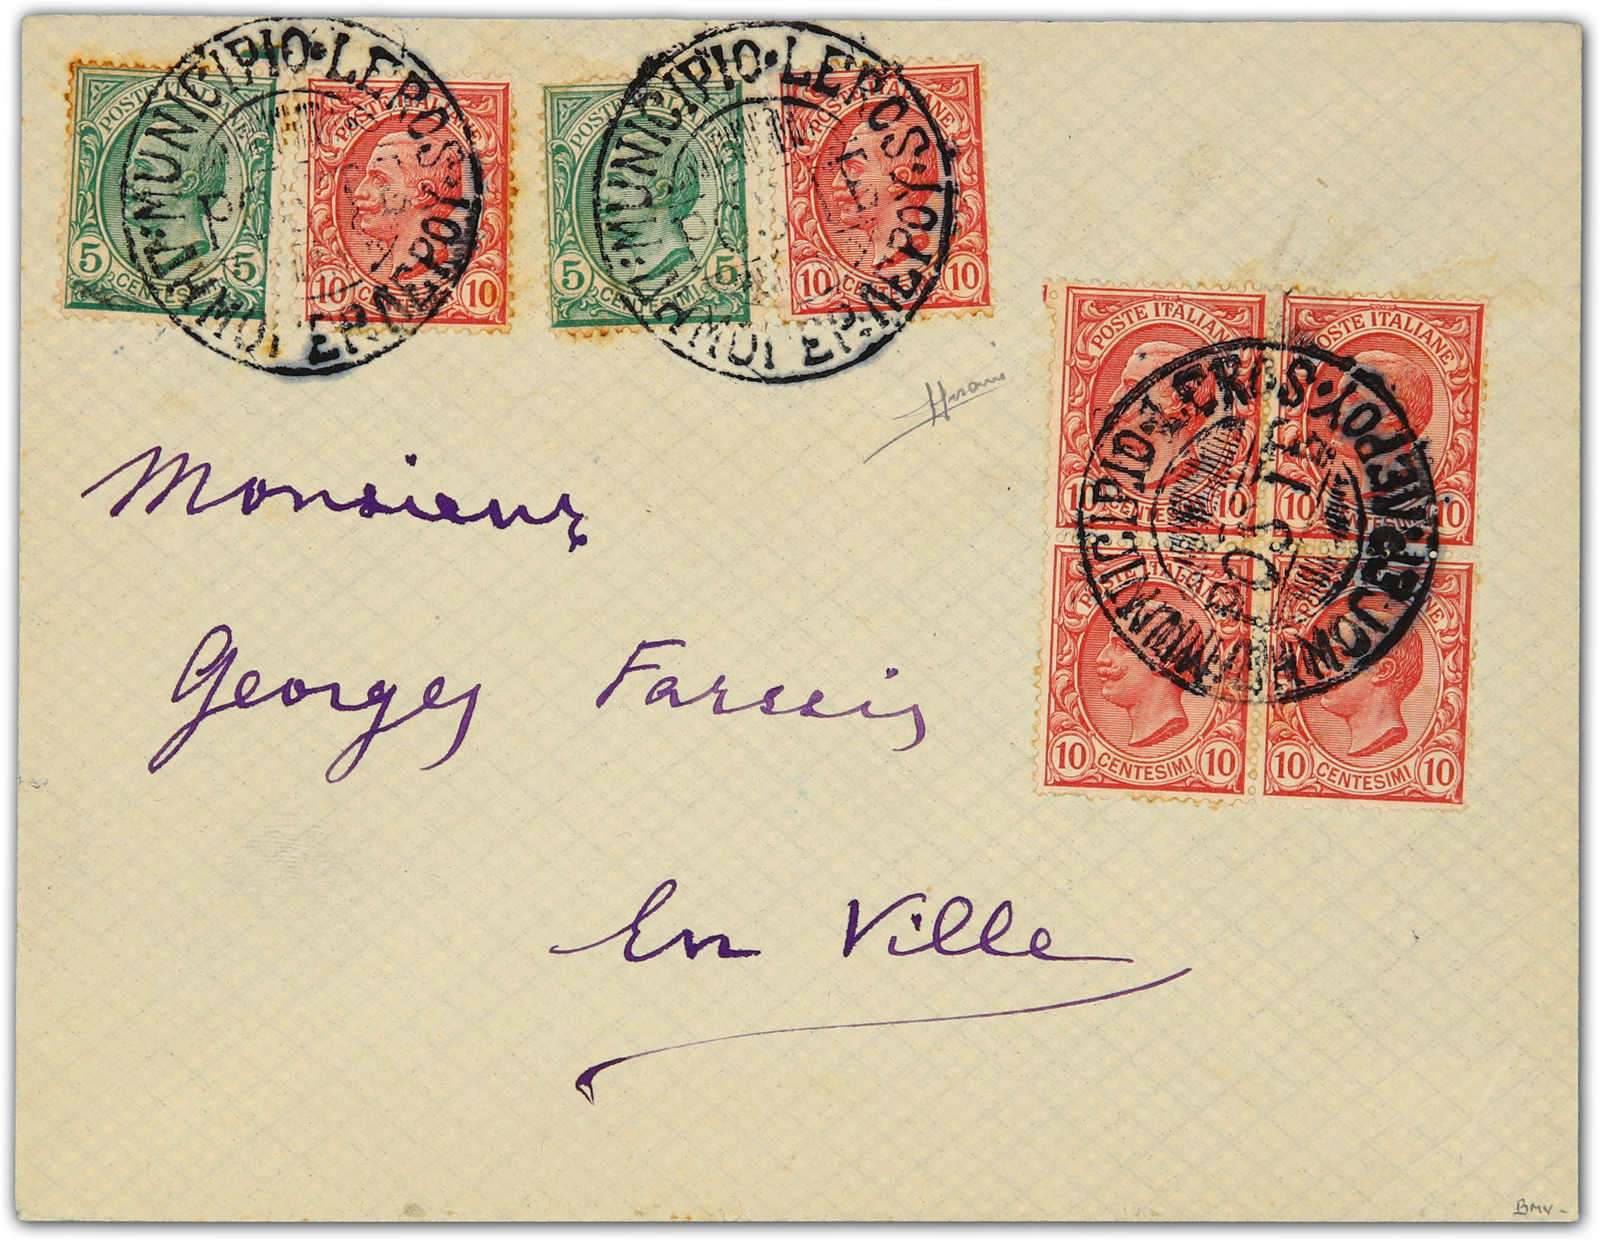 POSTE ITALIANE
5 CENTESIMI 5
POSTE ITALIANE
10 CENTESIMI 10
POSTE ITALIANE
5 CENTESIMI 5
POSTE ITALIANE
10 CENTESIMI 10
MUNICIPIO · LEROS ·
MUNICIPIO · LEROS ·
POSTE ITALIANE
10 CENTESIMI 10
POSTE ITALIANE
10 CENTESIMI 10
POSTE ITALIANE
10 CENTESIMI 10
POSTE ITALIANE
10 CENTESIMI 10
MUNICIPIO · LEROS ·
Monsieur
Georges Farssis
En Ville
BMV-